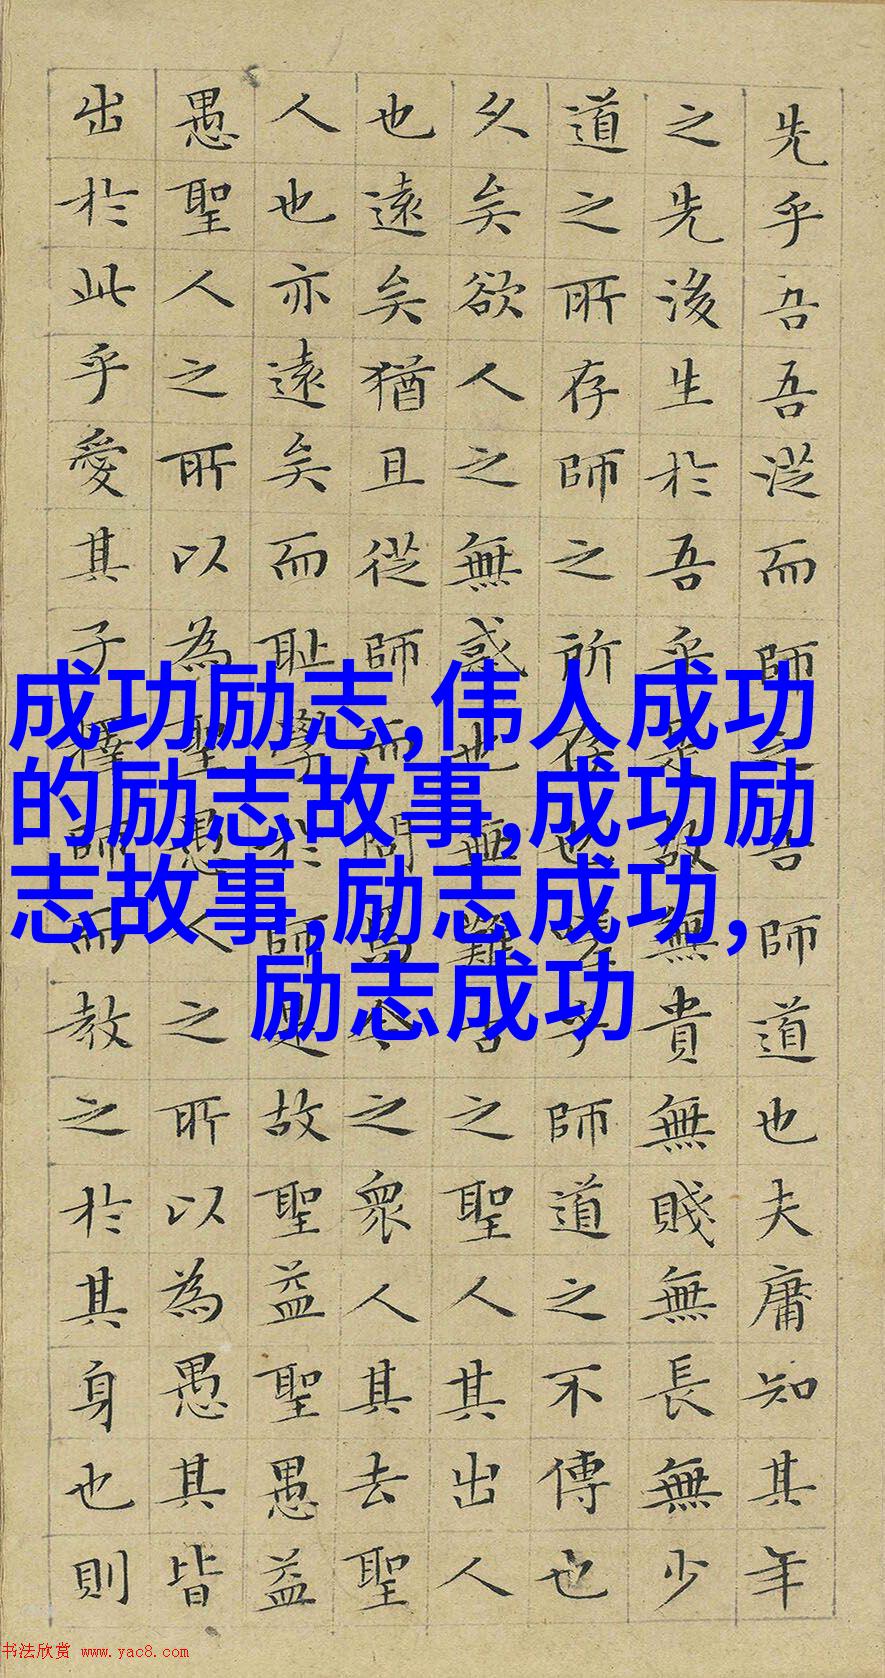 先乎吾吾從而師之吾師道也夫庸知其年
之先後生於吾乎是故無貴無賤無長無少
道之所存師之所存也嗟乎師道之不傳也
久矣欲人之無惑也無難古之聖人其出人
也遠矣猶且從師而問焉今之眾人其去聖
人也亦遠矣而耻學於師是故聖益聖愚益
愚聖人之所以為聖愚人之所以為愚其皆
出於此乎愛其子擇師而教之於其身也則
成功励志,伟人成功
的励志故事,成功励
志故事,励志成功,
励志成功
书法欣赏 www.yac8.com